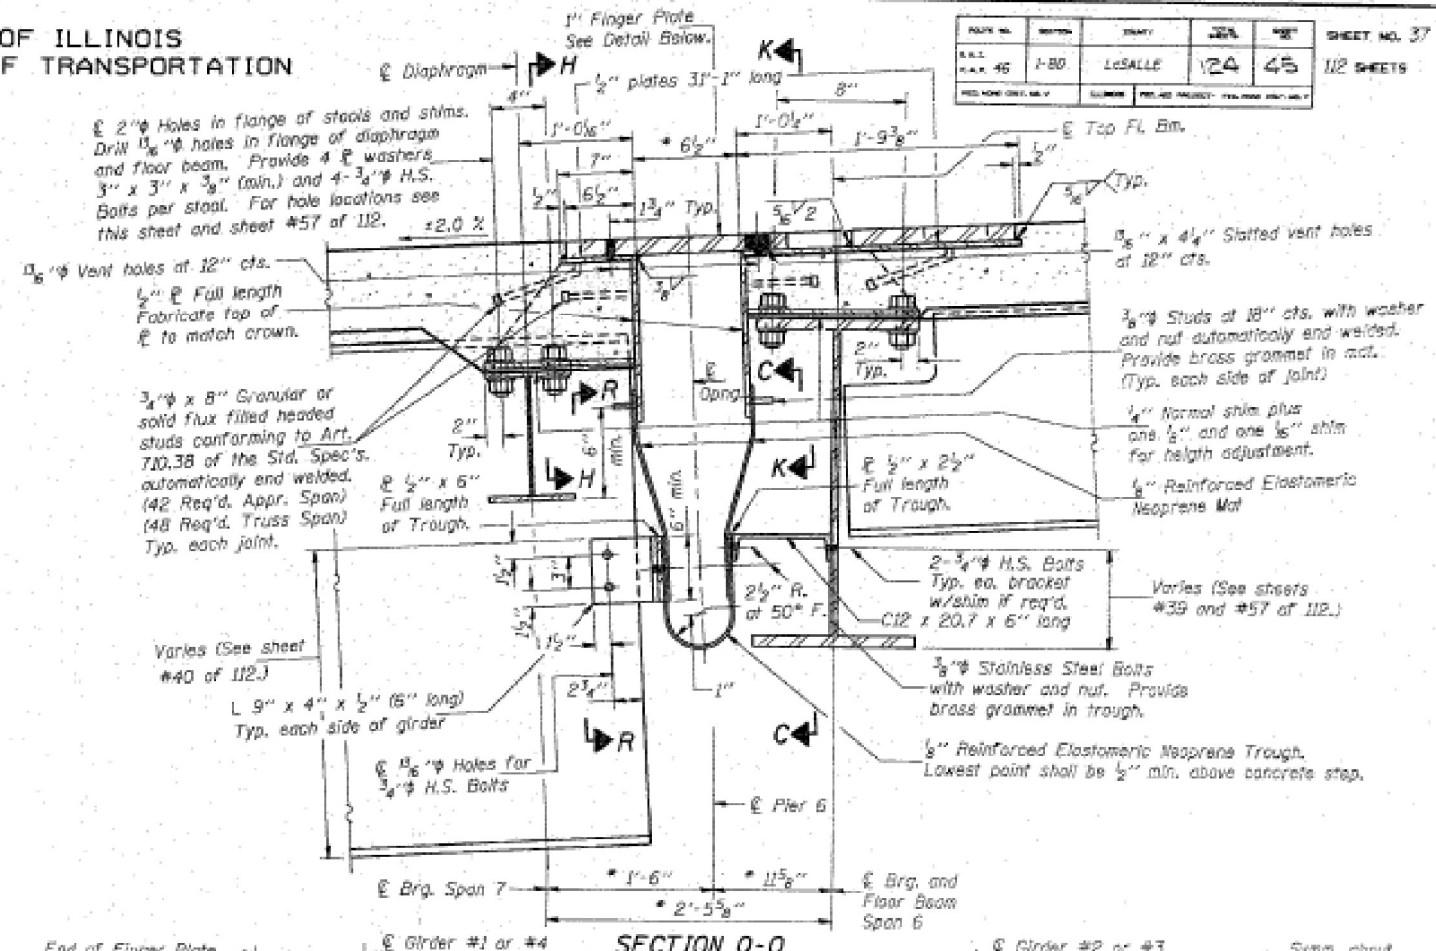 OF ILLINOIS
F TRANSPORTATION
1" Finger Plate
See Detail Below.
SHEET NO. 37
112 SHEETS
ROUTE NO.
SECTION
COUNTY
F.A.P. 46
1-BD
LaSALLE
124
45
ILLINOIS
℄ Diaphragm
H
K
½" plates 31'-1" long
4"
8"
℄ 2"φ Holes in flange of stools and shims.
Drill 13/16"φ holes in flange of diaphragm
and floor beam. Provide 4 ℄ washers
3" x 3" x 3/8" (min.) and 4-3/4"φ H.S.
Bolts per stool. For hole locations see
this sheet and sheet #57 of 112.
1'-0 1/16"
* 6½"
1'-0½"
1'-9 3/8"
℄ Top Fl. Bm.
7"
½"
6½"
1¾" Typ.
5/16
2
½"
5/16
Typ.
±2.0 %
13/16"φ Vent holes at 12" cts.
13/16" x 4¼" Slotted vent holes
at 12" cts.
½" ℄ Full length
Fabricate top of
℄ to match crown.
3/8
3/8"φ Studs at 18" cts. with washer
and nut automatically end welded.
Provide brass grommet in mat.
(Typ. each side of joint)
3/4"φ x 8" Granular or
solid flux filled headed
studs conforming to Art.
710.38 of the Std. Spec's.
automatically end welded.
(42 Req'd. Appr. Span)
(48 Req'd. Truss Span)
Typ. each joint.
2"
Typ.
R
6"
min.
℄
Opng.
C
2"
Typ.
¼" Normal shim plus
one 1/8" and one 1/16" shim
for heigth adjustment.
H
K
℄ ½" x 6"
Full length
of Trough.
6" min.
℄ ½" x 2½"
Full length
of Trough.
1/8" Reinforced Elastomeric
Neoprene Mat
1½"
3"
1½"
1½"
2½" R.
at 50° F.
2-3/4"φ H.S. Bolts
Typ. ea. bracket
w/shim if req'd.
C12 x 20.7 x 6" long
Varies (See sheets
#39 and #57 of 112.)
Varies (See sheet
#40 of 112.)
L 9" x 4" x ½" (6" long)
Typ. each side of girder
2¾"
1"
3/8"φ Stainless Steel Bolts
with washer and nut. Provide
brass grommet in trough.
R
C
℄ 13/16"φ Holes for
3/4"φ H.S. Bolts
1/8" Reinforced Elastomeric Neoprene Trough.
Lowest point shall be ½" min. above concrete step.
℄ Pier 6
℄ Brg. Span 7
* 1'-6"
* 11 5/8"
℄ Brg. and
Floor Beam
Span 6
* 2'-5 5/8"
End of Finger Plate
℄ Girder #1 or #4
SECTION Q-Q
℄ Girder #2 or #3
Symm. about